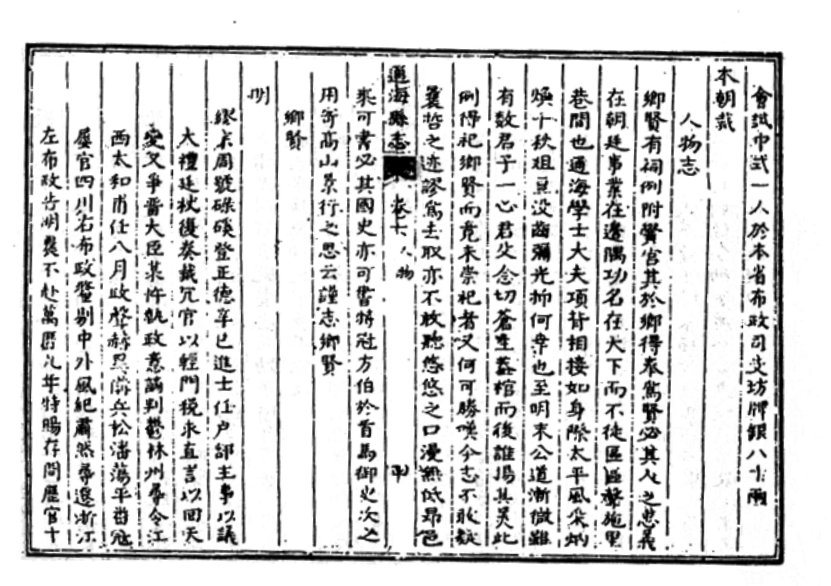 會試中式一人於本省布政司支坊牌銀八十兩
本朝裁
人物志
鄉賢有祠例附黌宮其於鄉得奉爲賢必其人之忠義
在朝廷事業在邊隅功名在天下而不徒區區聲施里
巷間也通海學士大夫項背相接如身際太平風采炳
煥十秩俎豆没齒彌光抑何幸也至明末公道漸微雖
有数君子一心君父念切蒼生蓋棺而後誰揚其美此
例得祀鄉賢而竟未崇祀者又何可勝嘆今志不敢
曩哲之迹謬爲去取亦不敢聽悠悠之口漫無低昂邑
通海縣志 卷十 人物
乘可書必其國史亦可書特冠方伯於首爲御史次之
用寄高山景行之思云謹志鄉賢
鄉賢
明
繆宗周號碌碌登正德辛巳進士任户部主事以議
大禮廷杖復奏裁冗官以輕門税求直言以回天
變又爭晋大臣某忤執政意謫判鬱林州尋令江
西太和甫任八月政聲赫然備兵松潘蕩平畨冠
屢官四川右布政釐剔中外風紀肅然尋遷浙江
左布政告明農不赴萬曆九年特賜存問歷官十